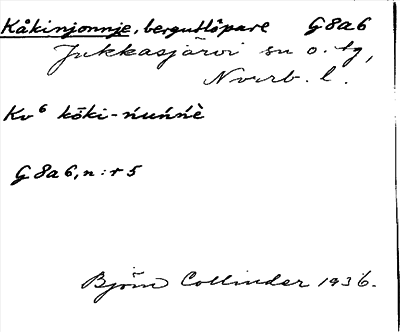 Kåkinjonnje, bergutlöpare G8a6
Jukkasjärvi sn o. tg,
Nvrrb. l.
Kv⁶ kōki-ńuńńè
G8a6, n:r 5
Björn Collinder 1936.